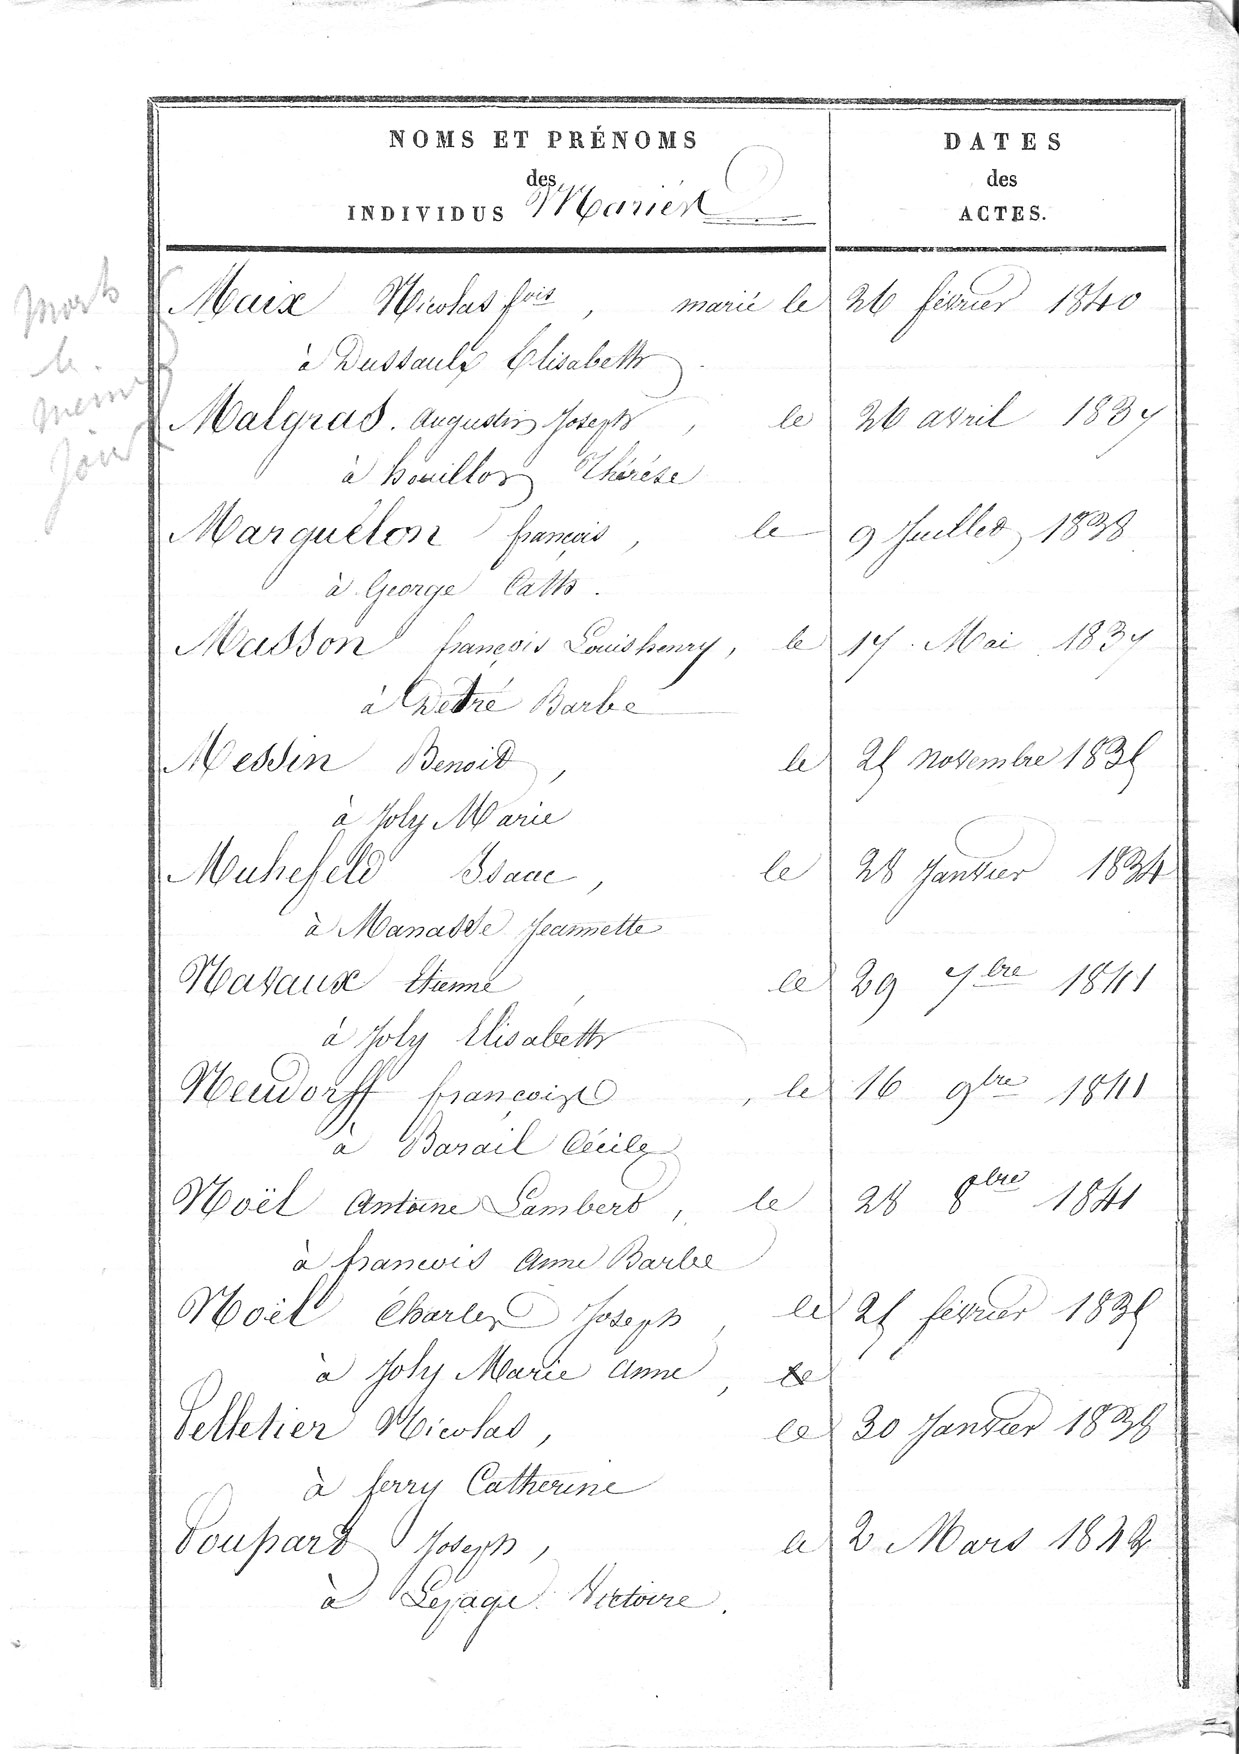 NOMS ET PRÉNOMS
des
INDIVIDUS Mariés
DATES
des
ACTES.
Morts
le
même
jour
Maix Nicolas fois, marié le 26 février 1840
à Dussaulx Elisabeth
Malgras. Augustin Joseph, le 26 avril 1837
à houillon Thérèse
Marquélon françois, le 9 Juillet 1838
à George Cath.
Masson françois Louis henry, le 17. Mai 1837
à Detré Barbe
Messin Benoit, le 25 novembre 1835
à Joly Marie
Muhefeld Isaac, le 28 Janvier 1834
à Manasse Jeannette
Navaux Etienne, le 29 7bre 1841
à Joly Elisabeth
Neudorff françois, le 16 9bre 1841
à Barail Cécile
Noël Antoine Lambert, le 28 8bre 1841
à francois Anne Barbe
Noël Charles Joseph, le 25 février 1835
à Joly Marie Anne, le
Pelletier Nicolas, le 30 Janvier 1838
à ferry Catherine
Poupart Joseph, le 2 Mars 1842
à Lepage Victoire.